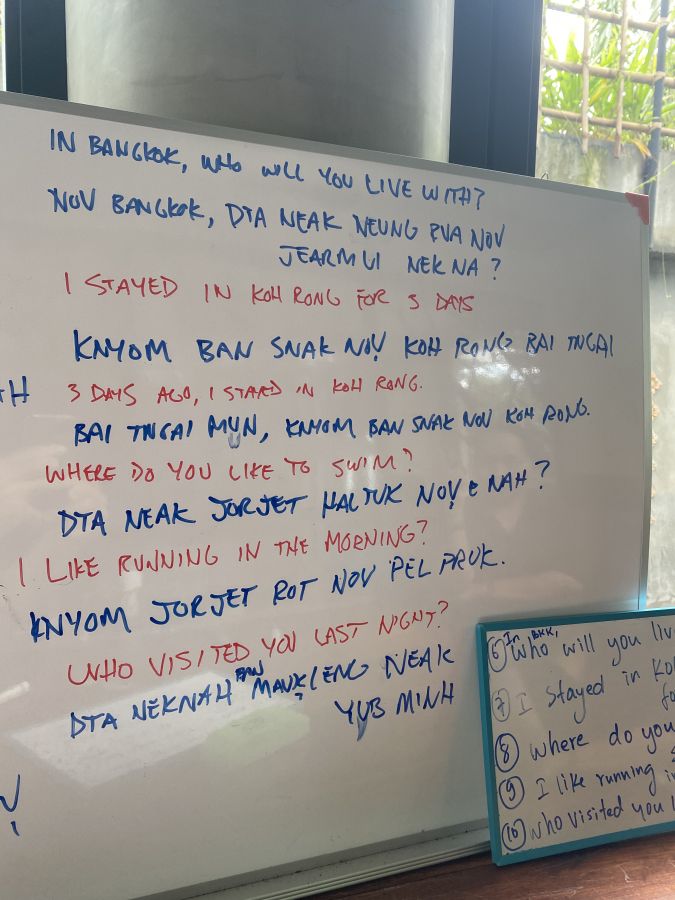 IN BANGKOK, WHO WILL YOU LIVE WITH?
NOV BANGKOK, DTA NEAK NEUNG RVA NOV
JEARMUI NEK NA?
I STAYED IN KOH RONG FOR 3 DAYS
KNYOM BAN SNAK NOV KOH RONG BAI TNGAI
TH
3 DAYS AGO, I STAYED IN KOH RONG.
BAI TNGAI MUN, KNYOM BAN SNAK NOV KOH RONG.
WHERE DO YOU LIKE TO SWIM?
DTA NEAK JORJET HALTUK NOV E NAH?
I LIKE RUNNING IN THE MORNING?
KNYOM JORJET ROT NOV PEL PRUK.
WHO VISITED YOU LAST NIGHT?
DTA NEKNAH BAN MAUKLENG NEAK
YUB MINH
V
In BKK,
6 Who will you liv
7 I stayed in Ko
fo
8 where do you
9 I like running i
10 who visited you l